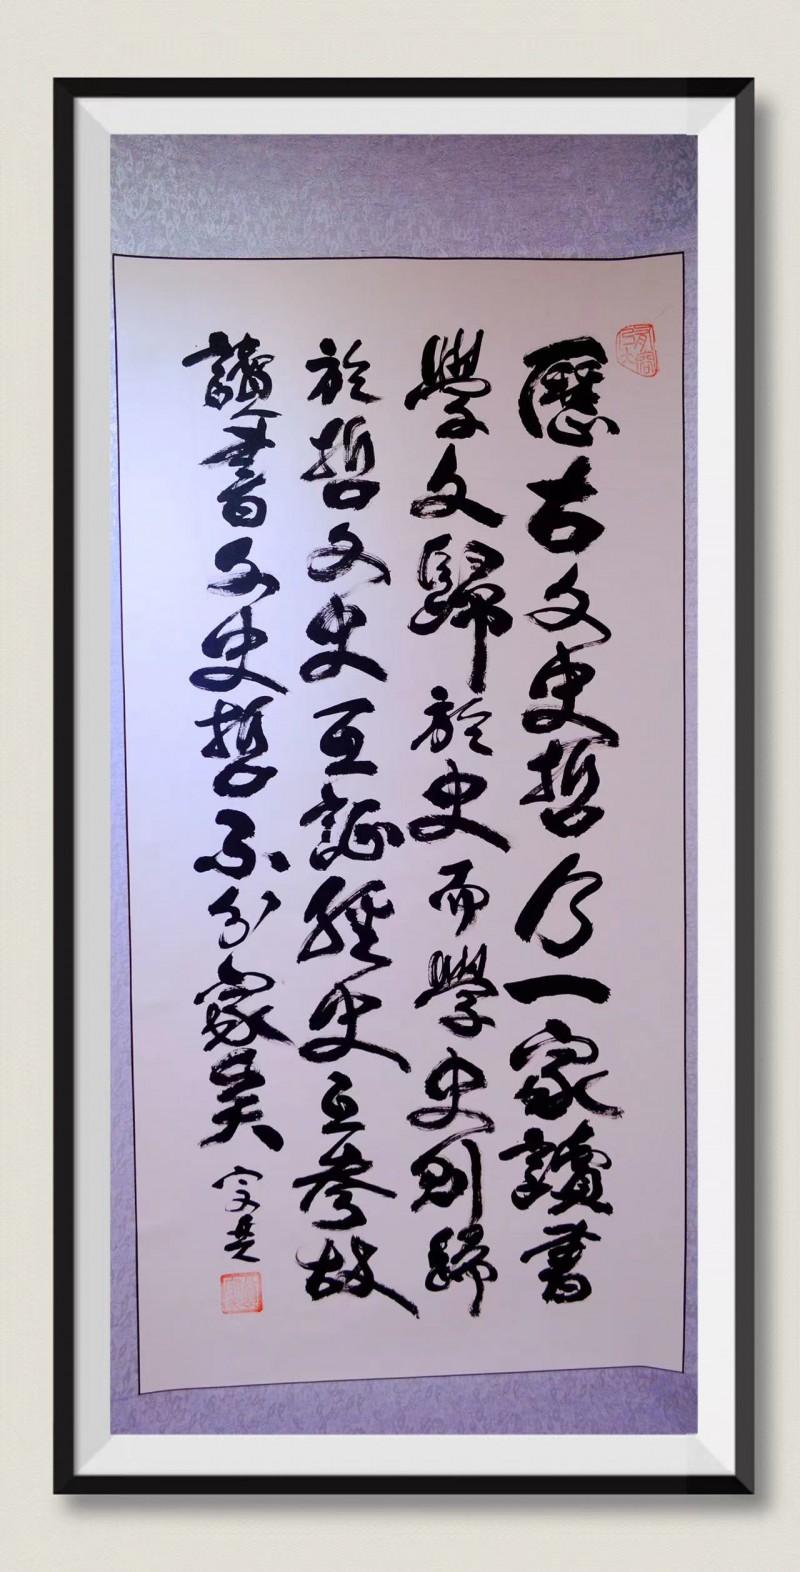 歷古文史哲乃一家讀書
學文歸於史而學史則歸
於哲文史互証經史互參故
讀書文史哲不分家矣